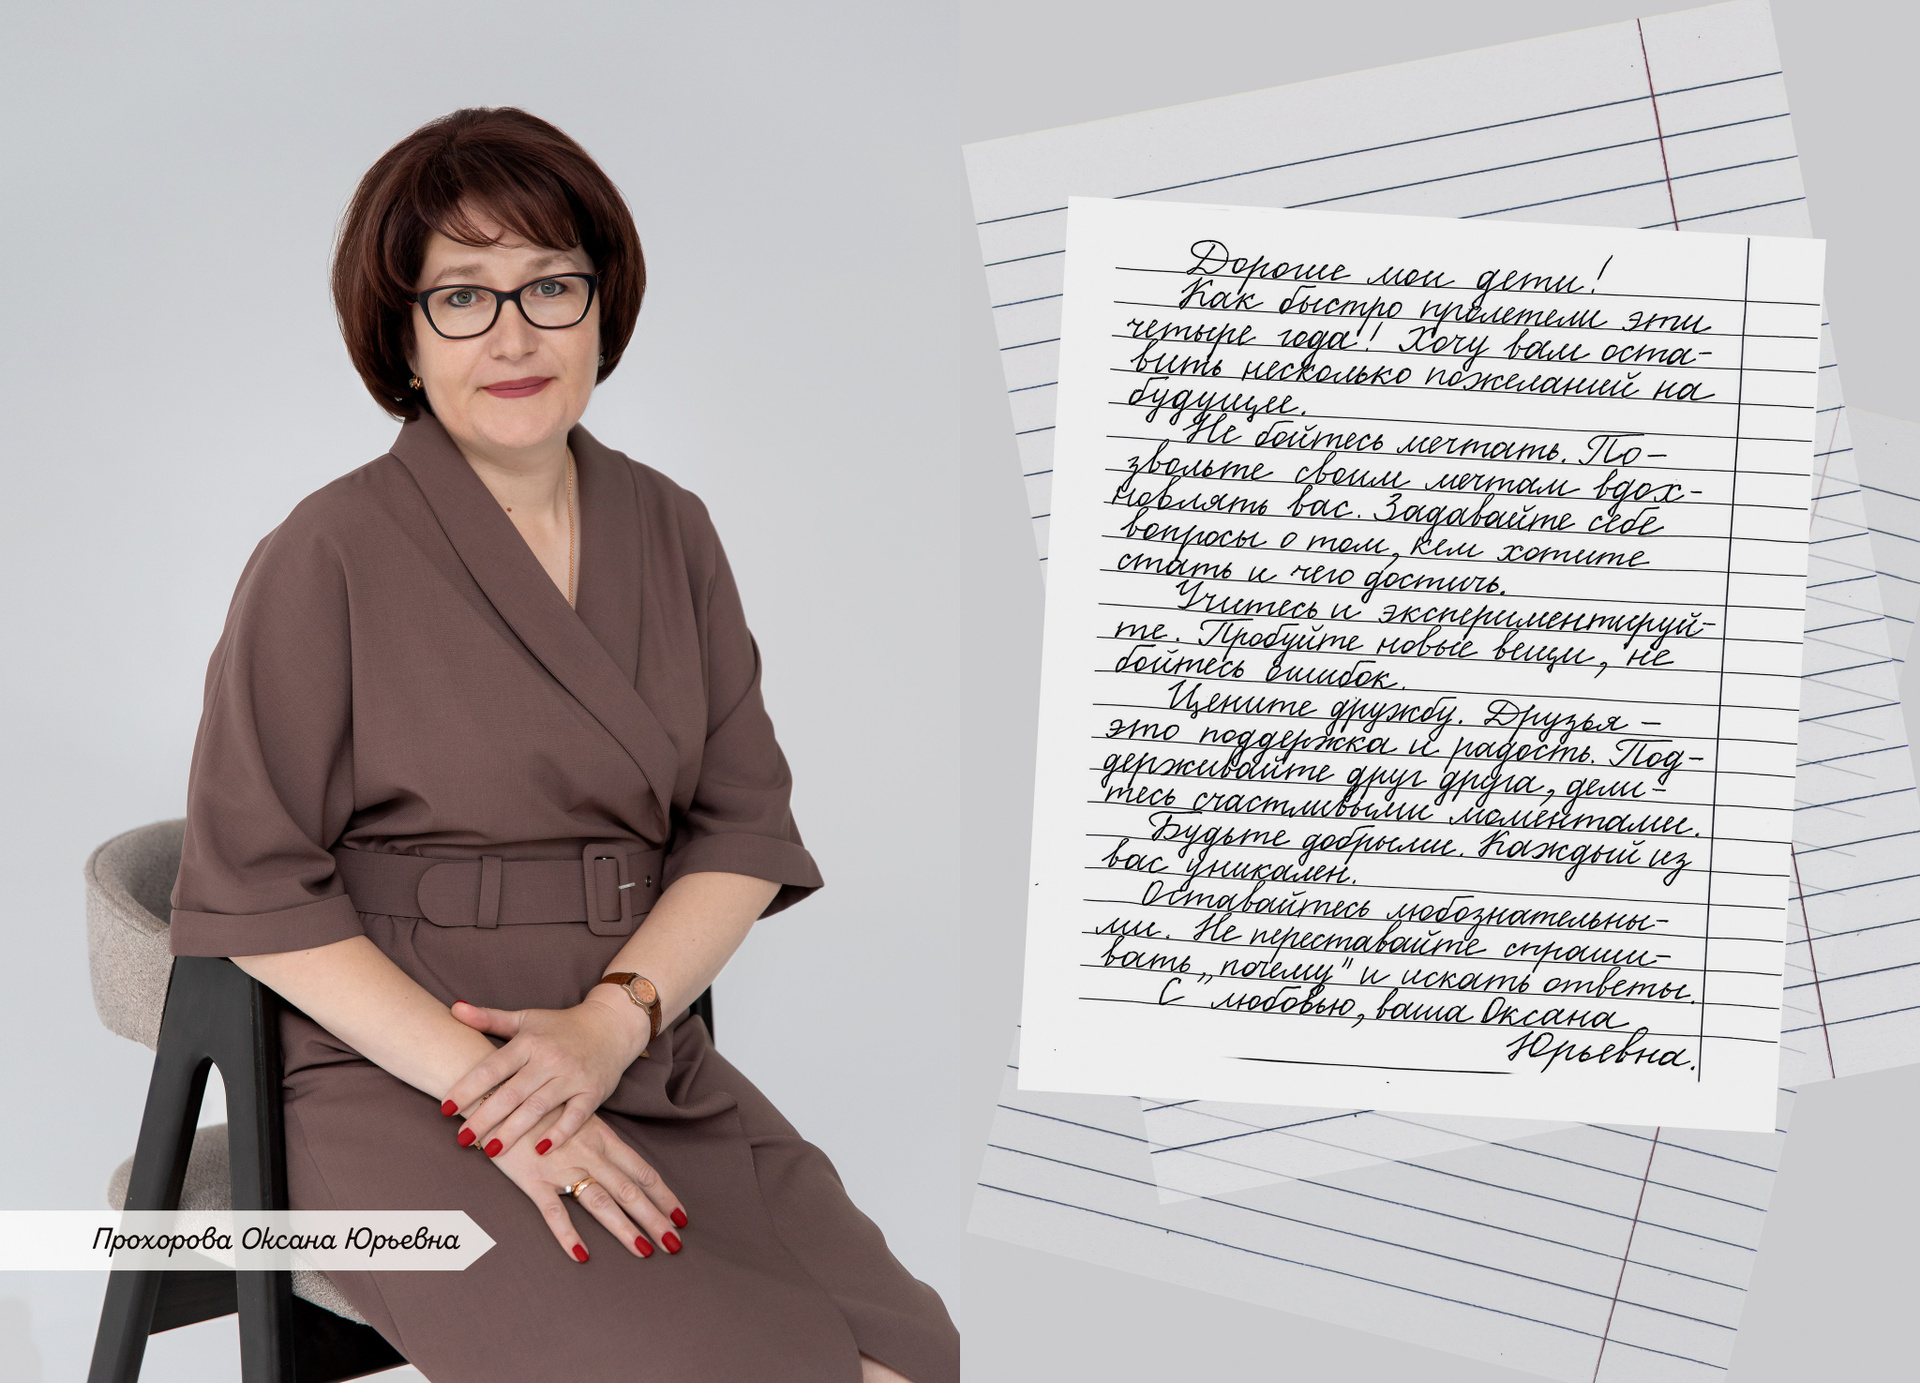 Прохорова Оксана Юрьевна
Дорогие мои дети!
Как быстро пролетели эти
четыре года! Хочу вам оста-
вить несколько пожеланий на
будущее.
Не бойтесь мечтать. По-
звольте своим мечтам вдох-
новлять вас. Задавайте себе
вопросы о том, кем хотите
стать и чего достичь.
Учитесь и экспериментируй-
те. Пробуйте новые вещи, не
бойтесь ошибок.
Цените дружбу. Друзья –
это поддержка и радость. Под-
держивайте друг друга, дели-
тесь счастливыми моментами.
Будьте добрыми. Каждый из
вас уникален.
Оставайтесь любознательны-
ми. Не переставайте спраши-
вать „почему" и искать ответы.
С любовью, ваша Оксана
Юрьевна.